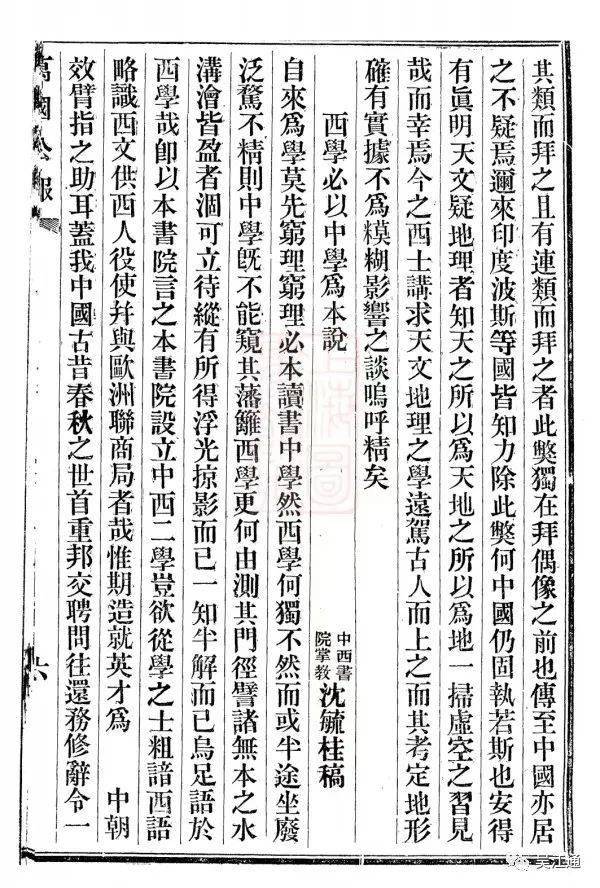 其類而拜之且有連類而拜之者此獘獨在拜偶像之前也傳至中國亦居
之不疑焉邇來印度波斯等國皆知力除此獘何中國仍固執若斯也安得
有眞明天文疑地理者知天之所以爲天地之所以爲地一掃虛空之習見
哉而幸焉今之西士講求天文地理之學遠駕古人而上之而其考定地形
確有實據不爲糢糊影響之談嗚呼精矣
西學必以中學爲本說
中西書院掌教沈毓桂稿
自來爲學莫先窮理窮理必本讀書中學然西學何獨不然而或半途坐廢
泛騖不精則中學旣不能窺其藩籬西學更何由測其門徑譬諸無本之水
溝澮皆盈者涸可立待縱有所得浮光掠影而已一知半解而已烏足語於
西學哉卽以本書院言之本書院設立中西二學豈欲從學之士粗諳西語
略識西文供西人役使幷與歐洲聯商局者哉惟期造就英才爲 中朝
效臂指之助耳蓋我中國古昔春秋之世首重邦交聘問往還務修辭令一
萬國公報
六
吴江通